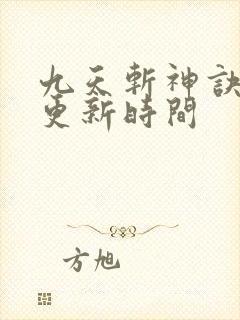 九天斬神訣
更新時間
方旭